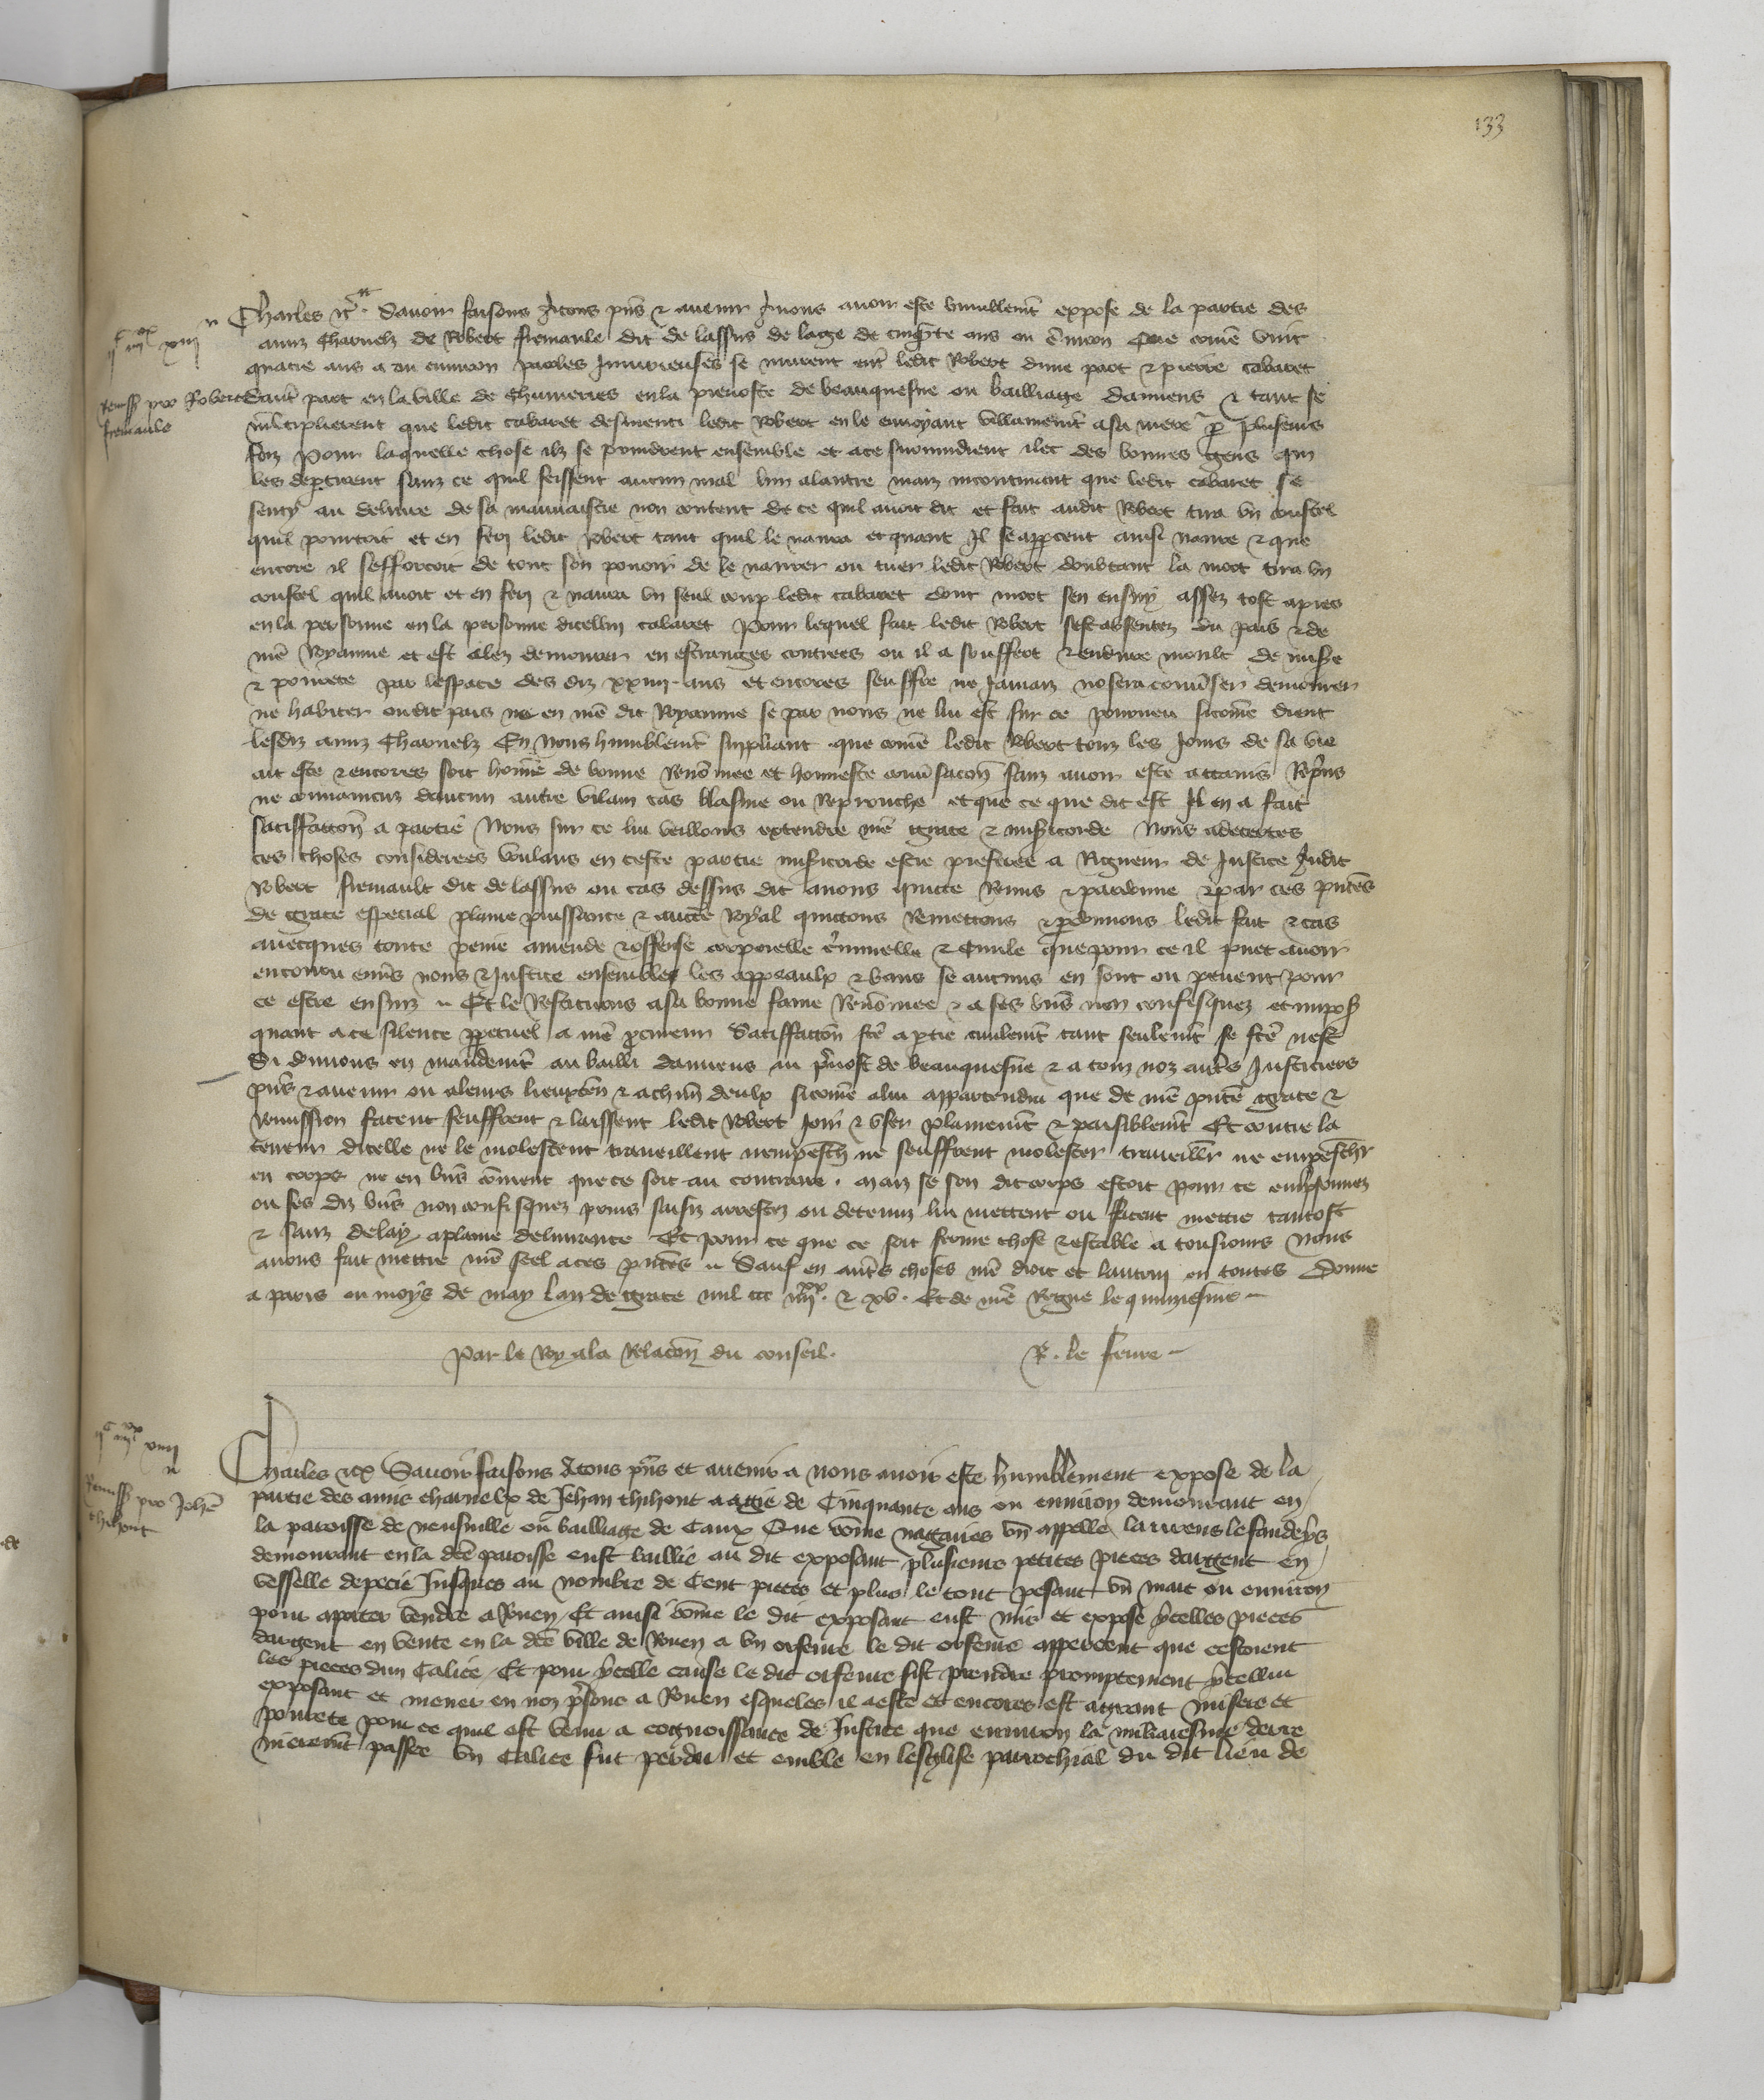 133
Charles etc. Savoir faisons a tous pns & avenir a nous avoir este humblemt expose de la partie des
amiz charnelz de Robert fremaule dit de lassus de laage de cinqte ans ou environ Que come vint
iic iiiixx xiii
quatre ans a ou environ paroles Iniurieuses se murent entre ledit Robert dune part & pierre cabaret
Remiss pro Robert
fremaule
dautre part en la ville de Chumeries en la prevoste de beauquesne ou bailliage damiens & tant se
multiplierent que ledit cabaret desmenti ledit Robert en le envoyant villainemt a sa mere par pluseurs
foiz Pour laquelle chose ilz se prindrent ensemble et a ce survindrent ilec des bonnes gens qui
les departirent sanz ce quil feissent aucun mal lun a lautre maiz incontinant que ledit cabaret se
senty au delivre de sa mauvaistie non content de ce quil avoit dit et fait audit Robert tira un coustel
quil pourtoit et en feri ledit Robert tant quil le navra et quant Il se apparcut ainsi navre & que
encore il sefforcoit de tout son povoir de le navrer ou tuer ledit Robert doubtant la mort tira un
coustel quil avoit et en feri & navra un seul coup ledit cabaret dont mort sen ensuy assez tost apres
en la personne en la personne dicellui cabaret Pour lequel fait ledit Robert sest absentez du pais & de
nre Royaume et est alez demourer en estranges contrees ou il a souffert & endure moult de misere
& povrete par lespace des diz xxiiii ans et encores seuffre ne Jamaiz nosera converser demourer
ne habiter oudit pais ne en nre dit Royaume se par nous ne lui est sur ce pourveu sicome dient
lesdiz amiz charnelz En nous humblemt suppliant que come ledit Robert touz les Jours de sa vie
ait este & encores soit home de bonne Renomee et honneste conversacon sanz avoir este attains Repris
ne convaincuz daucun autre vilain cas blasme ou Reprouche et que ce que dit est Il en a fait
satiffaccon a partie Nous sur ce lui veillons extendre nre grace & misericorde Nous adecertes
ces choses considerees voulans en ceste partie misericorde estre preferee a Rigueur de Justice Audit
Robert fremault dit de lassus ou cas dessus dit avons quicte Remis & pardonne & par ces pntes
de grace especial plaine puissance & aucte Royal quictons Remettons & pardonnons ledit fait & cas
avecques toute peine amende & offense corporelle criminelle & civile que pour ce il puet avoir
encouru envers nous & Justice ensembles les appeaulx & bans se aucuns en sont ou pevent pour
ce estre ensuiz Et le Restituons a sa bonne fame Renomee & a ses biens non confisquez et imposons
quant a ce silence perpetuel a nre procureur Satiffaccon fte a ptie civilemt tant seulemt se fte nest
Si donnons en mandemt au bailli damiens au prevost de beauquesne & a touz noz autres Justiciers
pns & avenir ou a leurs lieuxten & a chun deulx sicome a lui appartendra que de nre pnte grace &
Remission facent seuffrent & laissent ledit Robert Joir & user plainemt & paisiblemt Et contre la
teneur dicelle ne le molestent traveillent nempeschent ne seuffrent molester traveillier ne empeschier
en corps ne en biens coment que ce soit au contraire. maiz se son dit corps estoit pour ce emprisonnez
ou ses diz biens non confisquez prins saisiz arrestez ou detenuz lui mettent ou facent mettre tantost
& sanz delay a plaine delivrance Et pour ce que ce soit ferme chose & estable a tousiours Nous
avons fait mettre nre seel a ces pntes Sauf en autres choses nre droit et lautrui en toutes Donne
a paris ou moys de may lan de grace mil ccc iiiixx & xv. Et de nre Regne le quinziesme
Par le Roy a la Relacon du conseil. R. le fevre
iic iiiixx xiiii
Remiss pro Johe
thihont
Charles etc Savoir faisons a tous pns et avenir a nous avoir este humblement expose de la
partie des amis charnelx de Jehan thihont aagie de Cinquante ans ou environ demourant en
la paroisse de neufville ou bailliage de Caux Que come nagaires un appelle laurens lefandeys
demourant en la dce paroisse eust baillie au dit exposant plusieurs petites pieces dargent en
vesselle depecie Jusques au nombre de Cent pieces et plus le tout pesant un marc ou environ
pour aporter vendre a Rouen Et ainsi come le dit exposant eust mis et expose ycelles pieces
dargent en vente en la dce ville de Rouen a un orfevre le dit orfevre appercent que cestoient
les pieces dun Calice Et pour ycelle cause le dit orfevre fist prendre promptement ycellui
exposant et mener en noz prisons a Rouen esqueles il a este et encores est a grant misere et
povrete pour ce quil est venu a cognoissance de Justice que environ la derre
nieremt passee un Calice fut perdu et emble en lesglise parrochial du dit lieu de